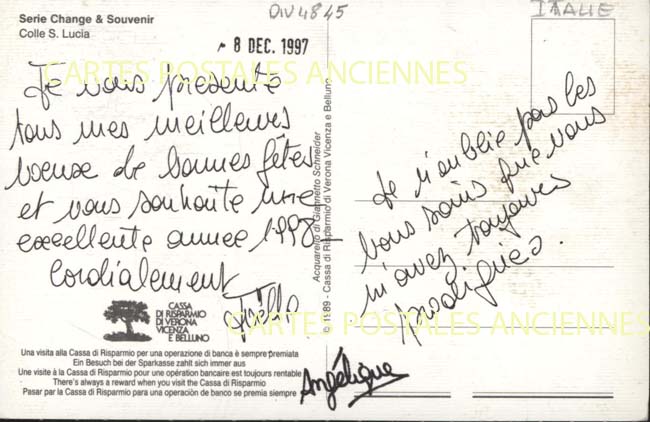 Serie Change & Souvenir
Colle S. Lucia
DIV4845
ITALIE
8 DEC. 1997
CARTES POSTALES ANCIENNES
Je vous présente
tous mes meilleures
voeux de bonnes fêtes
et vous souhaite une
excellente année 1998
Cordialement
Je n'oublie pas les
bons soins que vous
m'avez toujours
prodigués.
Angélique
Acquarello di Giannetto Schneider
© 1989 - Cassa di Risparmio di Verona Vicenza e Belluno
CASSA
DI RISPARMIO
DI VERONA
VICENZA
E BELLUNO
CARTES POSTALES ANCIENNES
Una visita alla Cassa di Risparmio per una operazione di banca è sempre premiata
Ein Besuch bei der Sparkasse zahlt sich immer aus
Une visite à la Cassa di Risparmio pour une opération bancaire est toujours rentable
There's always a reward when you visit the Cassa di Risparmio
Pasar por la Cassa di Risparmio para una operaciòn de banco se premia siempre